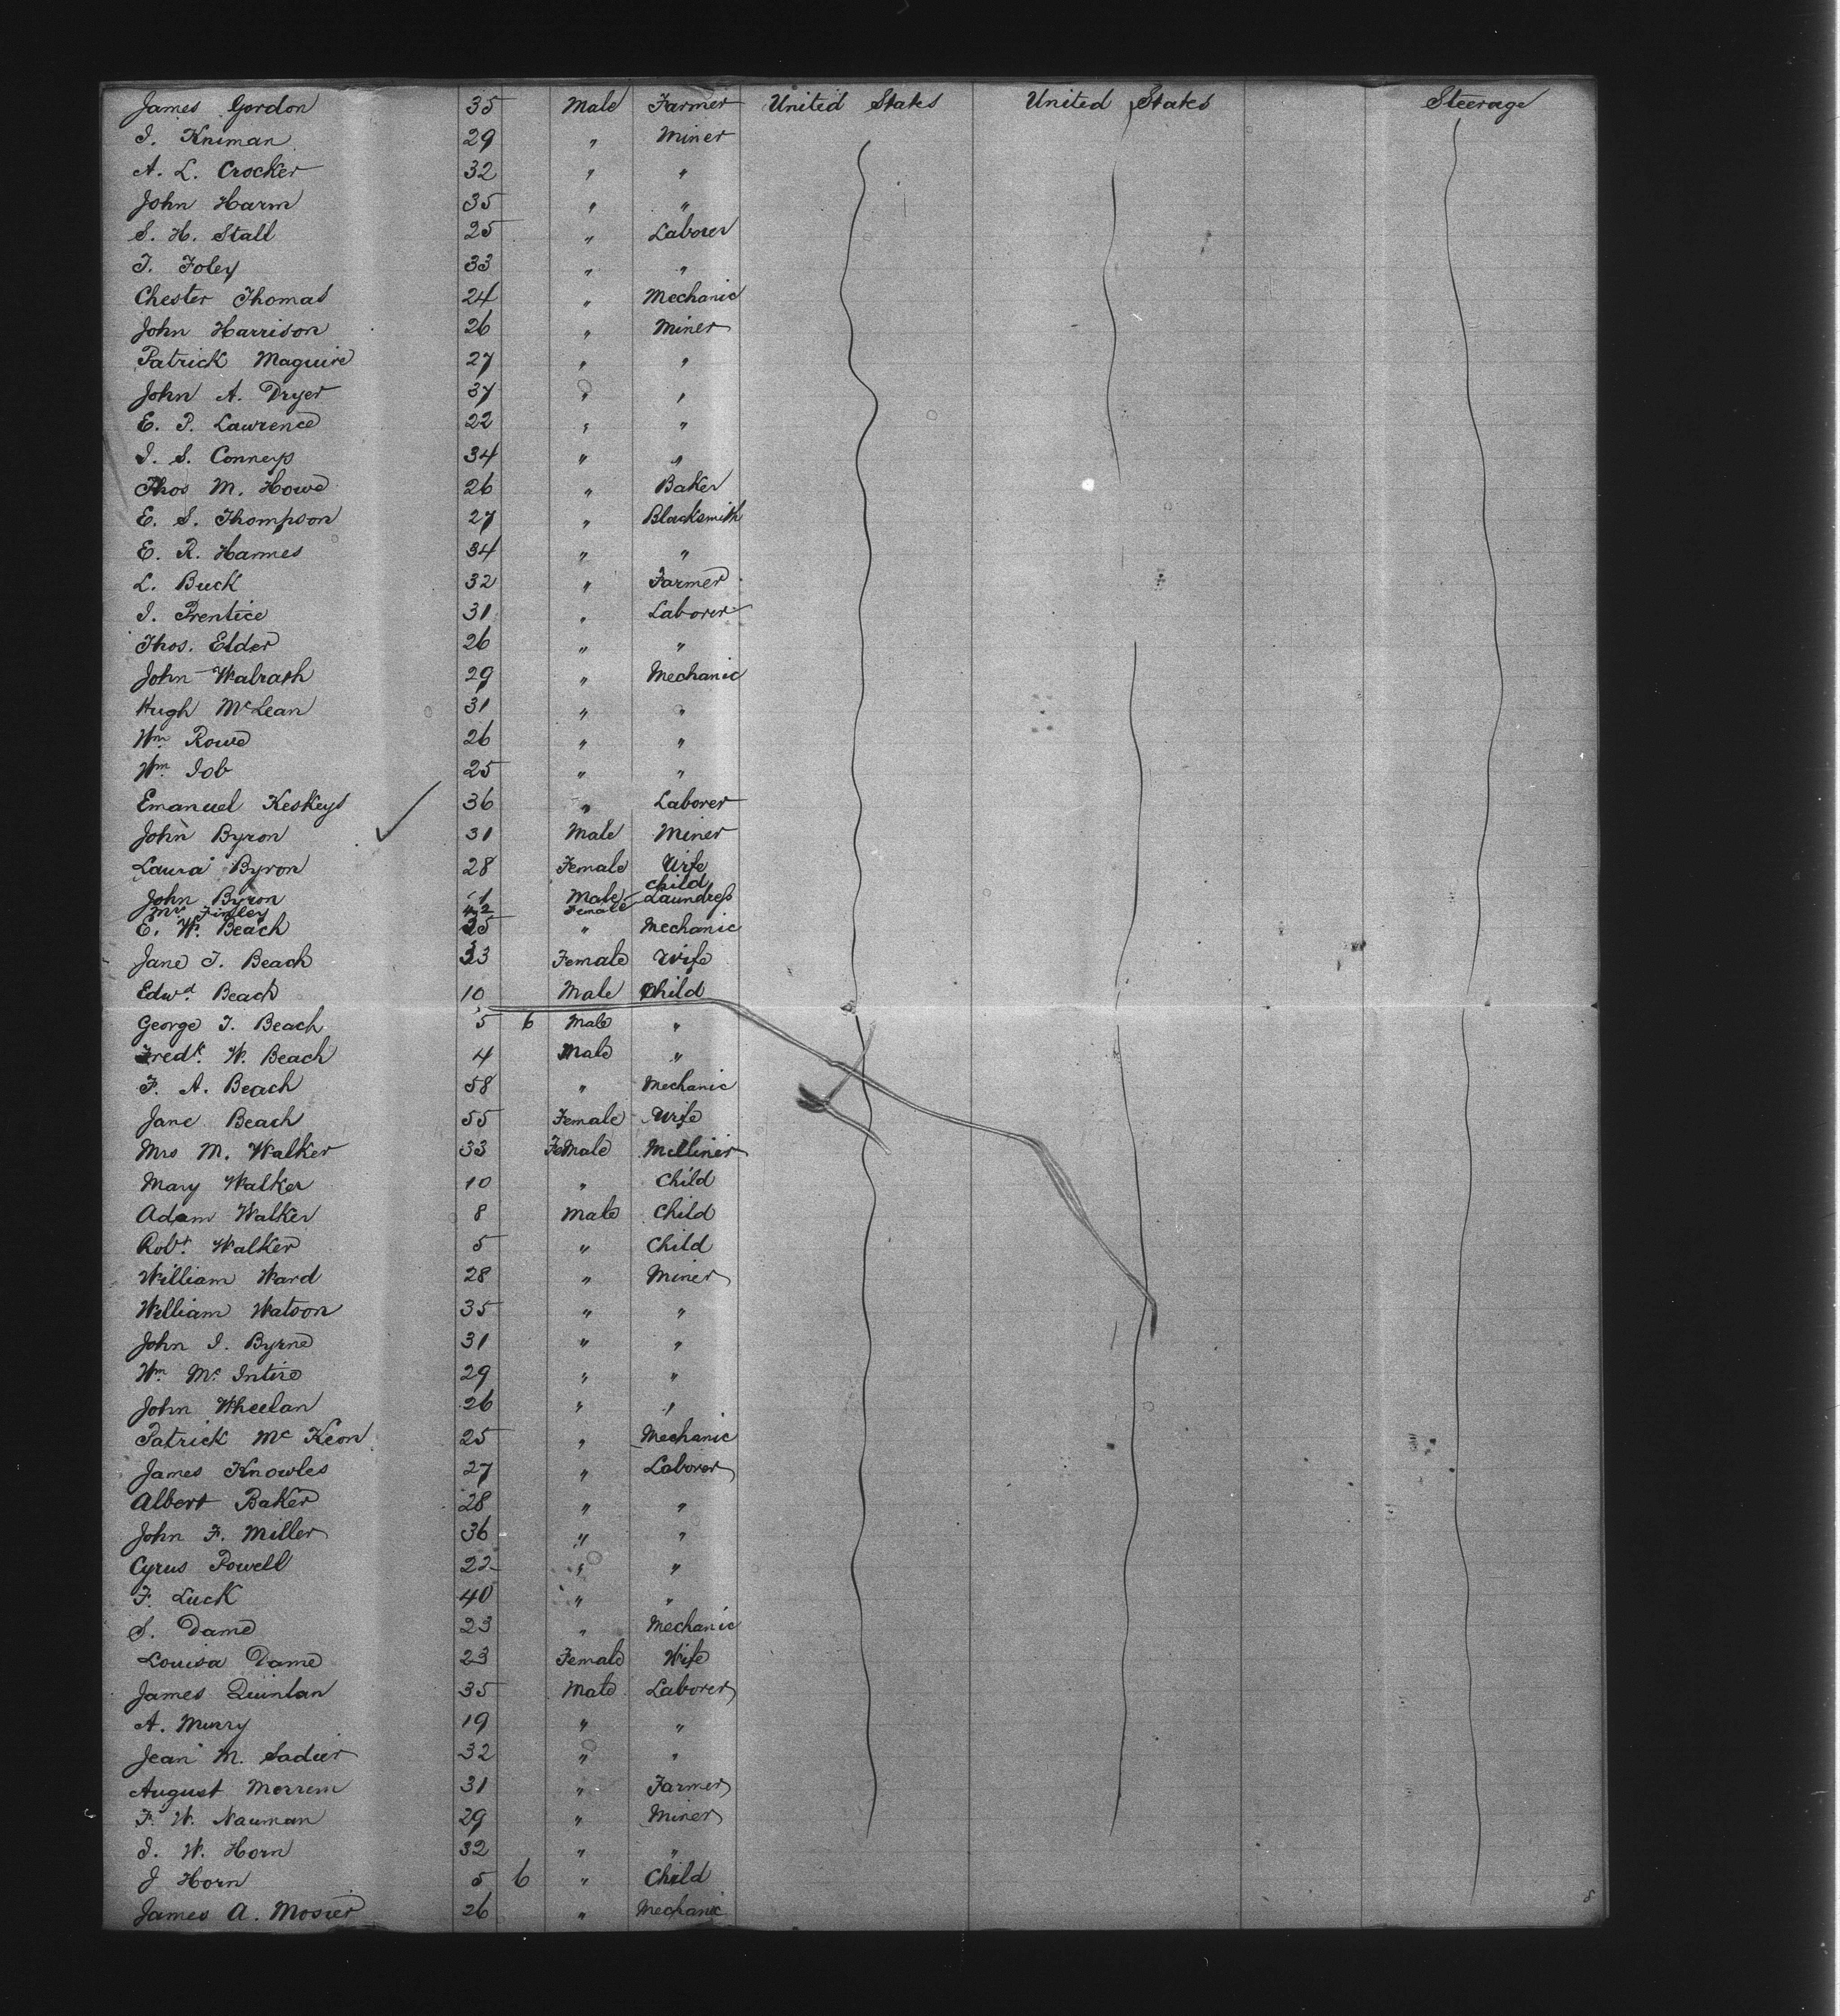 James Gordon 35 Male Farmer United States United States Steerage
I. Kniman 29 " Miner
A. L. Crocker 32 " "
John Harm 35 " "
S. H. Stall 25 " Laborer
T. Foley 33 " "
Chester Thomas 24 " Mechanic
John Harrison 26 " Miner
Patrick Maguire 27 " "
John A. Dryer 37 " "
E. P. Lawrence 22 " "
I. S. Conneys 34 " "
Thos M. Howe 26 " Baker
E. S. Thompson 27 " Blacksmith
E. R. Harmes 34 " "
L. Buck 32 " Farmer
I. Prentice 31 " Laborer
Thos. Elder 26 " "
John Walrath 29 " Mechanic
Hugh McLean 31 " "
Wm. Rowe 26 " "
Wm. Job 25 " "
Emanuel Keskeys 36 " Laborer
John Byron 31 Male Miner
Laura Byron 28 Female Wife
John Byron 1 Male child
Mrs Finley 42 Female Laundress
E. W. Beach 35 " Mechanic
Jane T. Beach 33 Female Wife
Edwd. Beach 10 Male Child
George T. Beach 5 6 Male "
Fredk. W. Beach 4 Male "
F. A. Beach 58 " Mechanic
Jane Beach 55 Female Wife
Mrs M. Walker 33 Female Milliner
Mary Walker 10 " Child
Adam Walker 8 Male Child
Robt. Walker 5 " Child
William Ward 28 " Miner
William Watson 35 " "
John I. Byrne 31 " "
Wm. Mc Intire 29 " "
John Wheelan 26 " "
Patrick Mc Keon 25 " Mechanic
James Knowles 27 " Laborer
Albert Baker 28 " "
John F. Miller 36 " "
Cyrus Powell 22 " "
F. Luck 40 " "
S. Dame 23 " Mechanic
Louisa Dame 23 Female Wife
James Quinlan 35 Male Laborer
A. Murry 19 " "
Jean M. Sadier 32 " "
August Merrem 31 " Farmer
F. W. Nauman 29 " Miner
I. W. Horn 32 " "
J Horn 5 6 " Child
James A. Mosier 26 " Mechanic